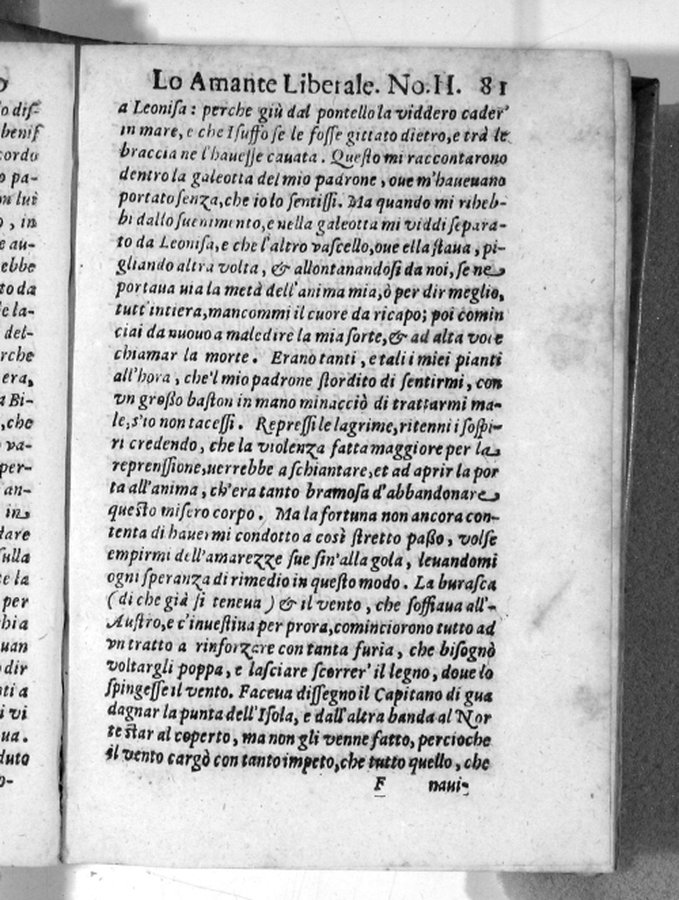 Lo Amante Liberale. No. II. 81
a Leonisa: perche giù dal pontello la viddero cader'
in mare, e che Isuffo se le fosse gittato dietro, e trà le
braccia ne l'hauesse cauata. Questo mi raccontarono
dentro la galeotta del mio padrone, oue m'haueuano
portato senza, che io lo sentissi. Ma quando mi riheb-
bi dallo suenimento, e nella galeotta mi viddi separa-
to da Leonisa, e che l'altro vascello, oue ella staua, pi-
gliando altra volta, & allontanandosi da noi, se ne
portaua uia la metà dell'anima mia, ò per dir meglio,
tutt' intiera, mancommi il cuore da ricapo; poi comin
ciai da nuouo a maledire la mia sorte, & ad alta voce
chiamar la morte. Erano tanti, e tali i miei pianti
all'hora, che'l mio padrone stordito di sentirmi, con
vn grosso baston in mano minacciò di trattarmi ma-
le, s'io non tacessi. Repressi le lagrime, ritenni i sospi-
ri credendo, che la violenza fatta maggiore per la
reprenssione, uerrebbe a schiantare, et ad aprir la por
ta all'anima, ch'era tanto bramosa d'abbandonare
questo misero corpo. Ma la fortuna non ancora con-
tenta di hauermi condotto a così stretto passo, volse
empirmi dell'amarezze sue sin'alla gola, leuandomi
ogni speranza di rimedio in questo modo. La burasca
(di che già si teneua) & il vento, che soffiaua all'-
Austro, e c'inuestiua per prora, cominciorono tutto ad
vn tratto a rinforzare con tanta furia, che bisognò
voltargli poppa, e lasciare scorrer' il legno, doue lo
spingesse il vento. Faceua dissegno il Capitano di gua
dagnar la punta dell'Isola, e dall'altra banda al Nor
te star al coperto, ma non gli venne fatto, percioche
il vento cargò con tanto impeto, che tutto quello, che
F naui-